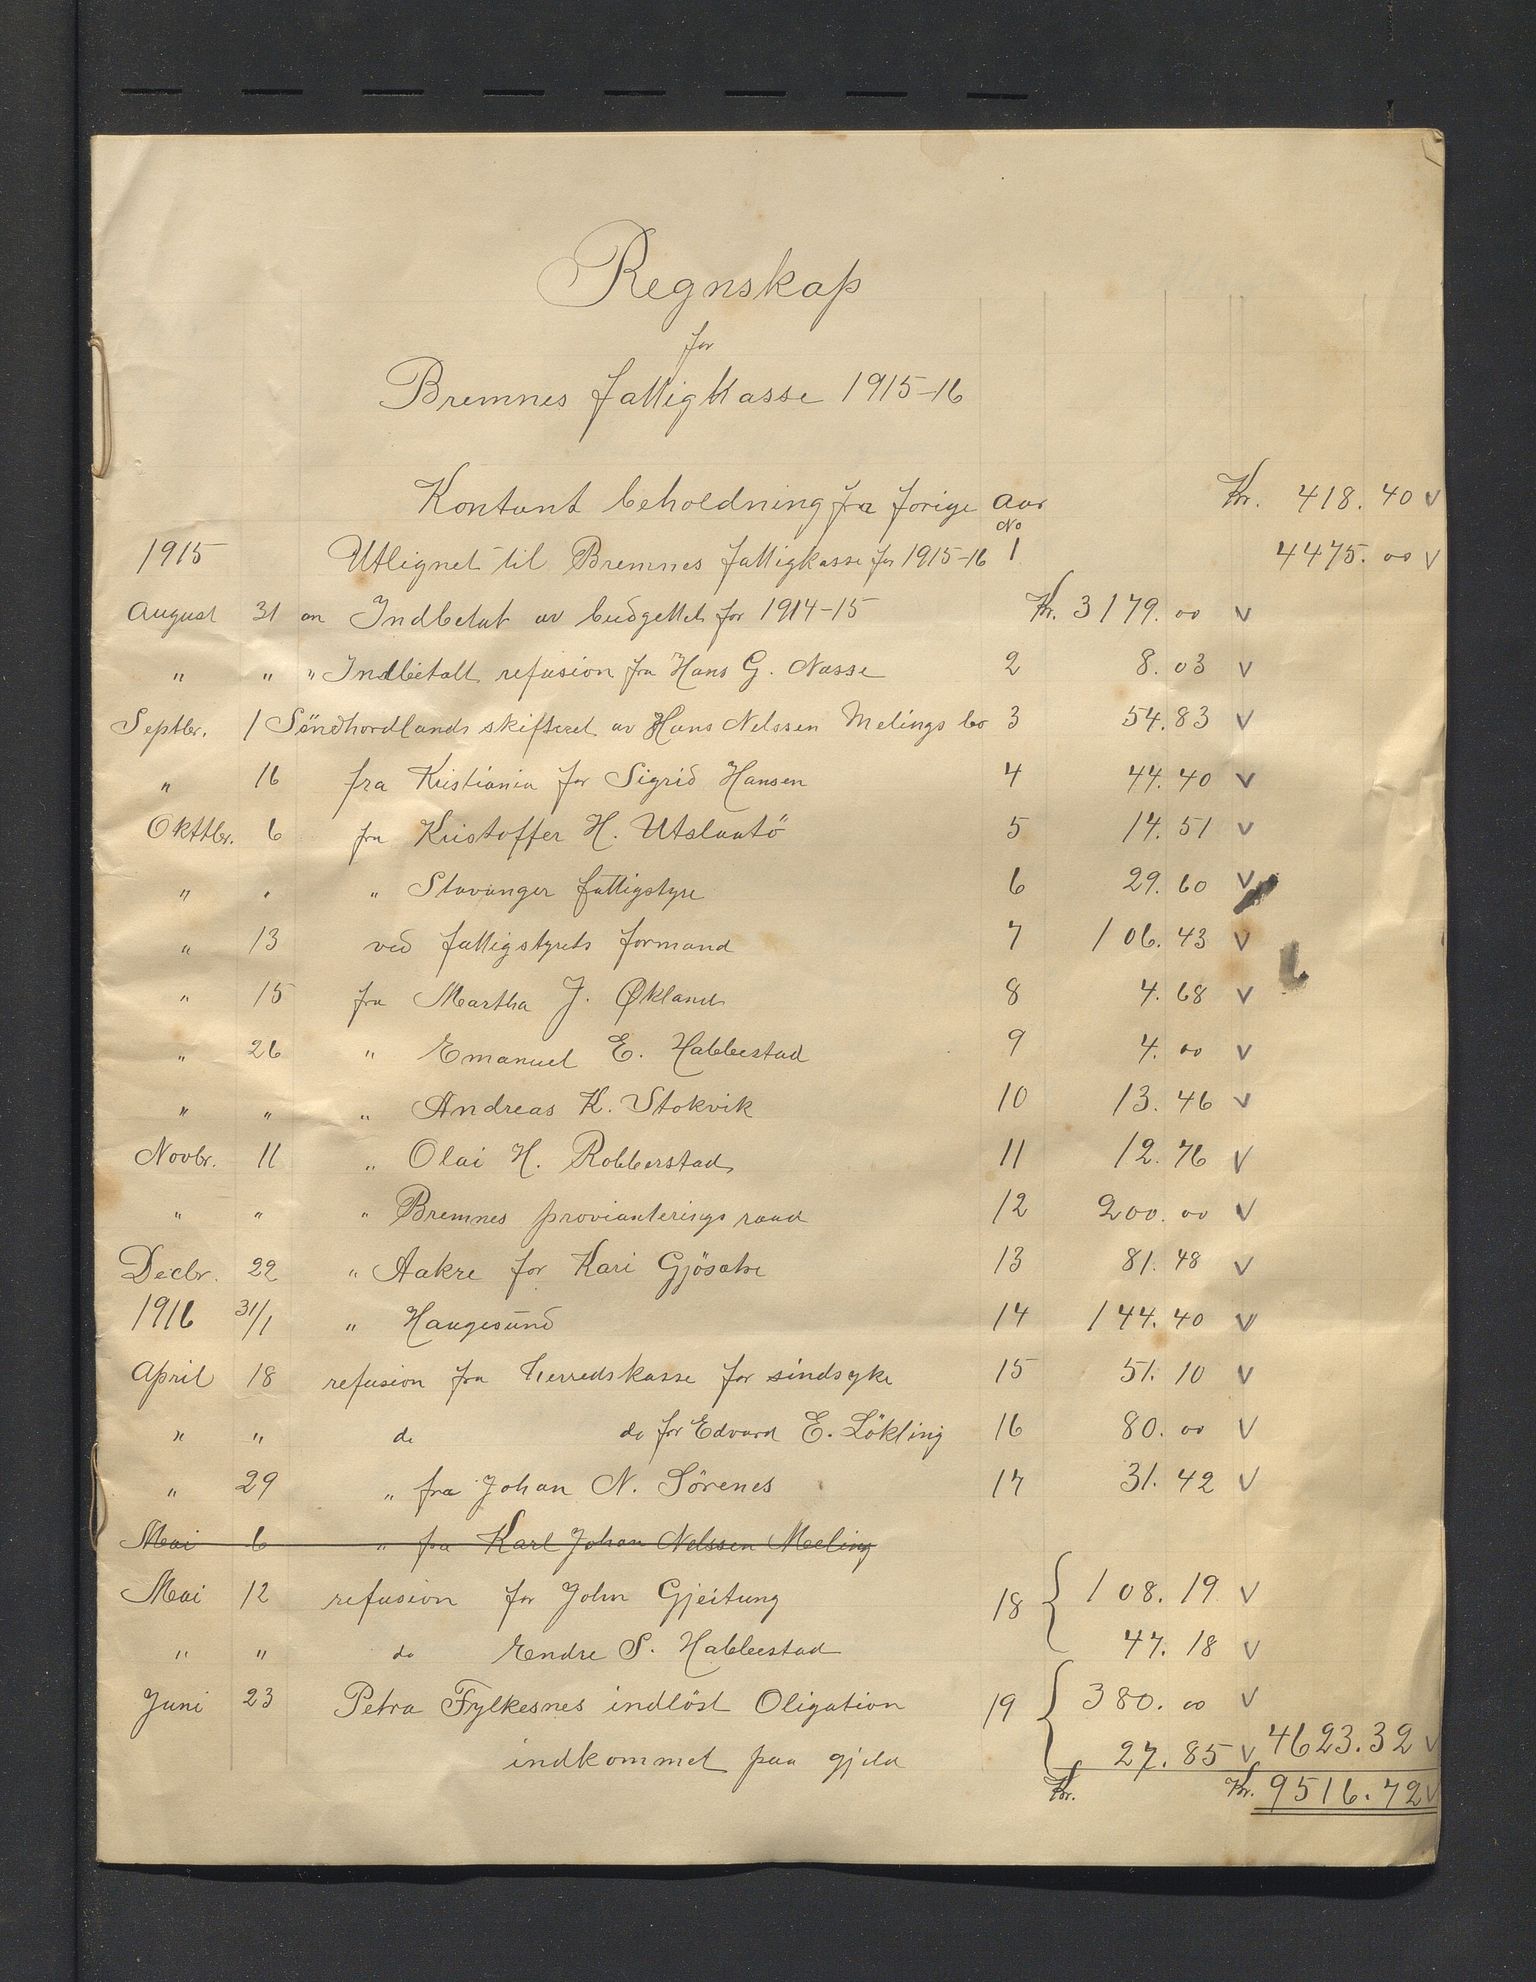 Regnskap
for
Bremnes fattigkasse 1915-16
Kontant beholdning fra forige aar Kr. 418.40 v
1915 Utlignet til Bremnes fattigkasse for 1915-16 No 1 4475.00 v
August 31 an Indbetat av budgettet for 1914-15 Kr. 3179.00 v
" " " Indbetalt refusion fra Hans G. Næsse 2 8.03 v
Septbr. 1 Söndhordlands skifteret av Hans Nelssen Melings bo 3 54.83 v
" 16 fra Kristiania for Sigrid Hansen 4 44.40 v
Okttbr. 6 fra Kristoffer H. Utslaatö 5 14.51 v
" " " Stavanger fattigstyre 6 29.60 v
" 13 ved fattigstyrets formand 7 106.43 v
" 15 fra Martha J. Økland 8 4.68 v
" 26 " Emanuel E. Habbestad 9 4.00 v
" " " Andreas K. Stokvik 10 13.46 v
Novbr. 11 " Olai H. Robberstad 11 12.76 v
" " " Bremnes provianterings raad 12 200.00 v
Decbr. 22 " Aakre for Kari Gjösæter 13 81.48 v
1916 31/1 " Haugesund 14 144.40 v
April 18 refusion fra herredskasse for sindsyke 15 51.10 v
" " do do for Edvard E. Lökling 16 80.00 v
" 29 " fra Johan N. Sörenes 17 31.42 v
Mai 6 " fra Karl Johan Nelssen Meeling
Mai 12 refusion for John Gjeitung 18 { 108.19 v
" " do Endre S. Habbestad 47.18 v
Juni 23 Petra Fylkesnes indlöst Oligation 19 { 380.00 v
indkommet paa gjeld 27.85 v 4623.32 v
Kr. Kr. 9516.72 v